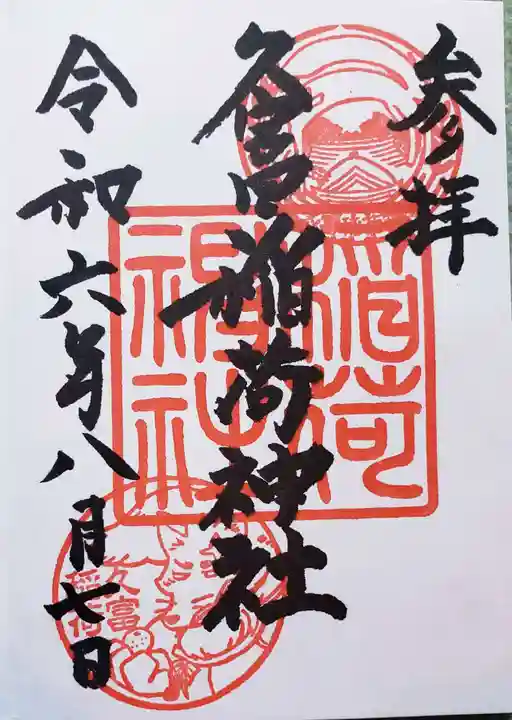 参拝
久富稲荷神社
令和六年八月七日
稲荷
神社
久富
稲荷